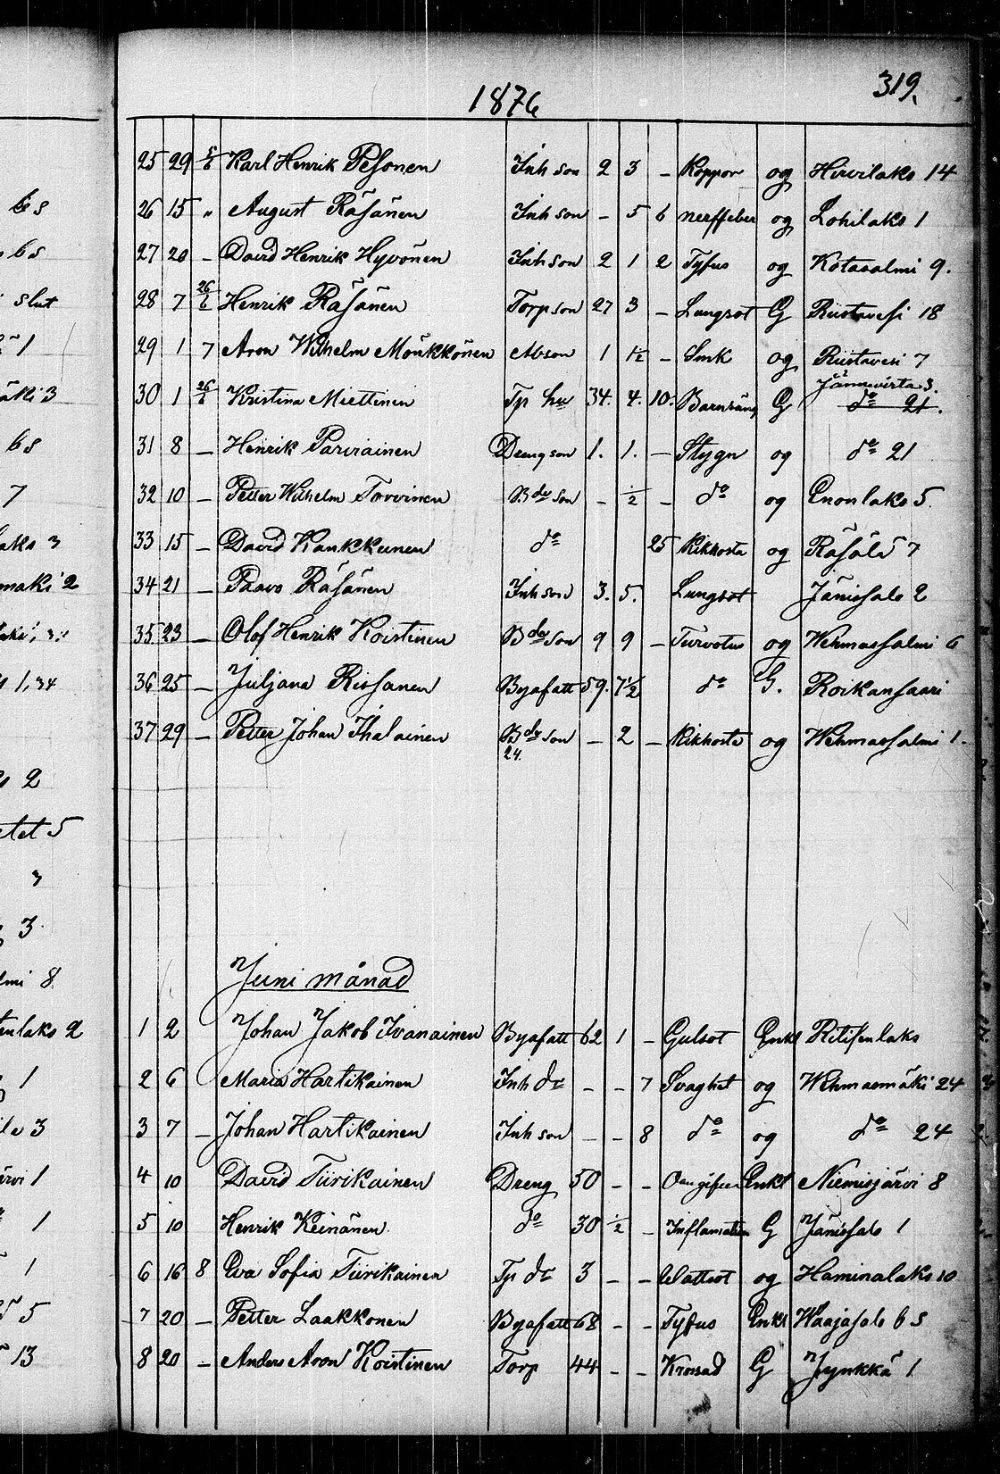 319.
1876
25 29 5/6 Karl Henrik Pesonen Inh son 2 3 - Koppor og Hirvilaks 14
26 15 " August Räsänen Inh son - 5 6 nerffeber og Lohilaks 1
27 20 - David Henrik Hyvönen Inh son 2 1 2 Tyfus og Kotasalmi 9.
28 7 26/6 Henrik Räsänen Torp son 27 3 - Lungsot G Riistavesi 18
29 1 7 Aron Wilhelm Mönkkönen Abson 1 1/2 - Smk og Riistavesi 7
Jännevirta 3.
30 1 26/6 Kristina Miettinen Tp hu 34. 4. 10. Barnsäng G do 21.
31 8 - Henrik Parviainen Dreng son 1. 1. - Stygn og do 21
32 10 - Petter Wilhelm Tovvinen Bde son - 1/2 - do og Enonlaks 5.
33 15 - David Kankkunen do 25 Kikhosta og Räsälä 7
34 21 - Paavo Räsänen Inh son 3. 5. Lungsot Jänissalo 2
35 23 - Olof Henrik Koistinen Bde son 9 9 - Turvotus og Wehmassalmi 6
36 25 - Juljana Rissanen Byafatt 59. 7 1/2 do G. Roikansaari
37 29 - Petter Johan Ihalainen Bde son - 2 - Kikhosta og Wehmassalmi 1.
24.
Juni månad
1 2 Johan Jakob Ivanainen Byafatt 62 1 - Gulsot Enkl Ritisenlaks
2 6 Maria Hartikainen Inh dr - - 7 Svaghet og Wehmasmäki 24
3 7 - Johan Hartikainen Inh son - - 8 do og do 24
4 10 David Tiirikainen Dreng 50 - - Enkl Niemisjärvi 8
5 10 Henrik Keinänen do 30 1/2 - Inflamation G Jänissalo 1
6 16 8 Eva Sofia Tiirikainen Tp dr 3 - - Wattsot og Haminalaks 10
7 20 - Petter Laakkonen Byafatt 68 - - Tyfus Enkl Waajasalo 6 5
8 20 - Anders Aron Koistinen Torp 44 - - G Jynkkä 1